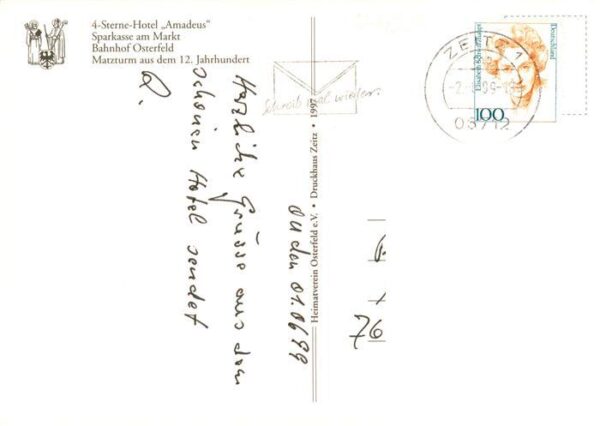 4-Sterne-Hotel „Amadeus"
Sparkasse am Markt
Bahnhof Osterfeld
Matzturm aus dem 12. Jahrhundert
den 01.0699
Herzliche Grüsse aus dem
schönen Hotel sendet
Schreib mal wieder.
Heimatverein Osterfeld e.V. • Druckhaus Zeitz • 1997
ZEITZ 1
06712
Deutschland
Elisabeth Schwarzhaupt
100
76